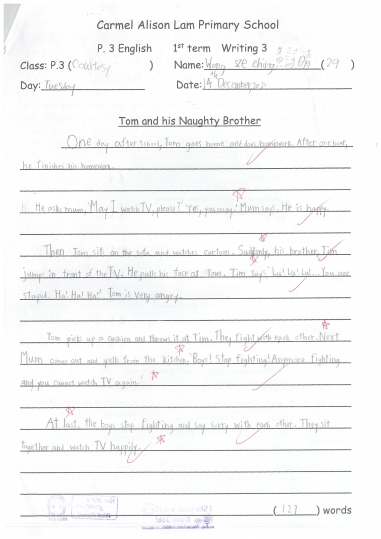 Carmel Alison Lam Primary School
P. 3 English 1st term Writing 3
Class: P.3 (Courtesy) Name: Wong sze ching (29)
Day: Tuesday Date: 14th December 2021
Tom and his Naughty Brother
One day after school, Tom goes home and does homework. After one hour,
he finishes his homework.
He asks mum, 'May I watch TV, please?' 'Yes, you may.' Mum says. He is happy.
Then Tom sits on the sofa and watches cartoon. Suddenly, his brother, Tim
jumps in front of the TV. He pulls his face at Tom. Tim says 'La! La! La!.. You are
stupid. Ha! Ha! Ha!' Tom is very angry.
Tom pick up a cushion and throws it at Tim. They fight with each other. Next
Mum comes out and yells from the kitchen, 'Boys! Stop fighting! Anymore fighting
and you cannot watch TV again.'
At last, the boys stop fighting and say sorry with each other. They sit
together and watch TV happily.
(127) words